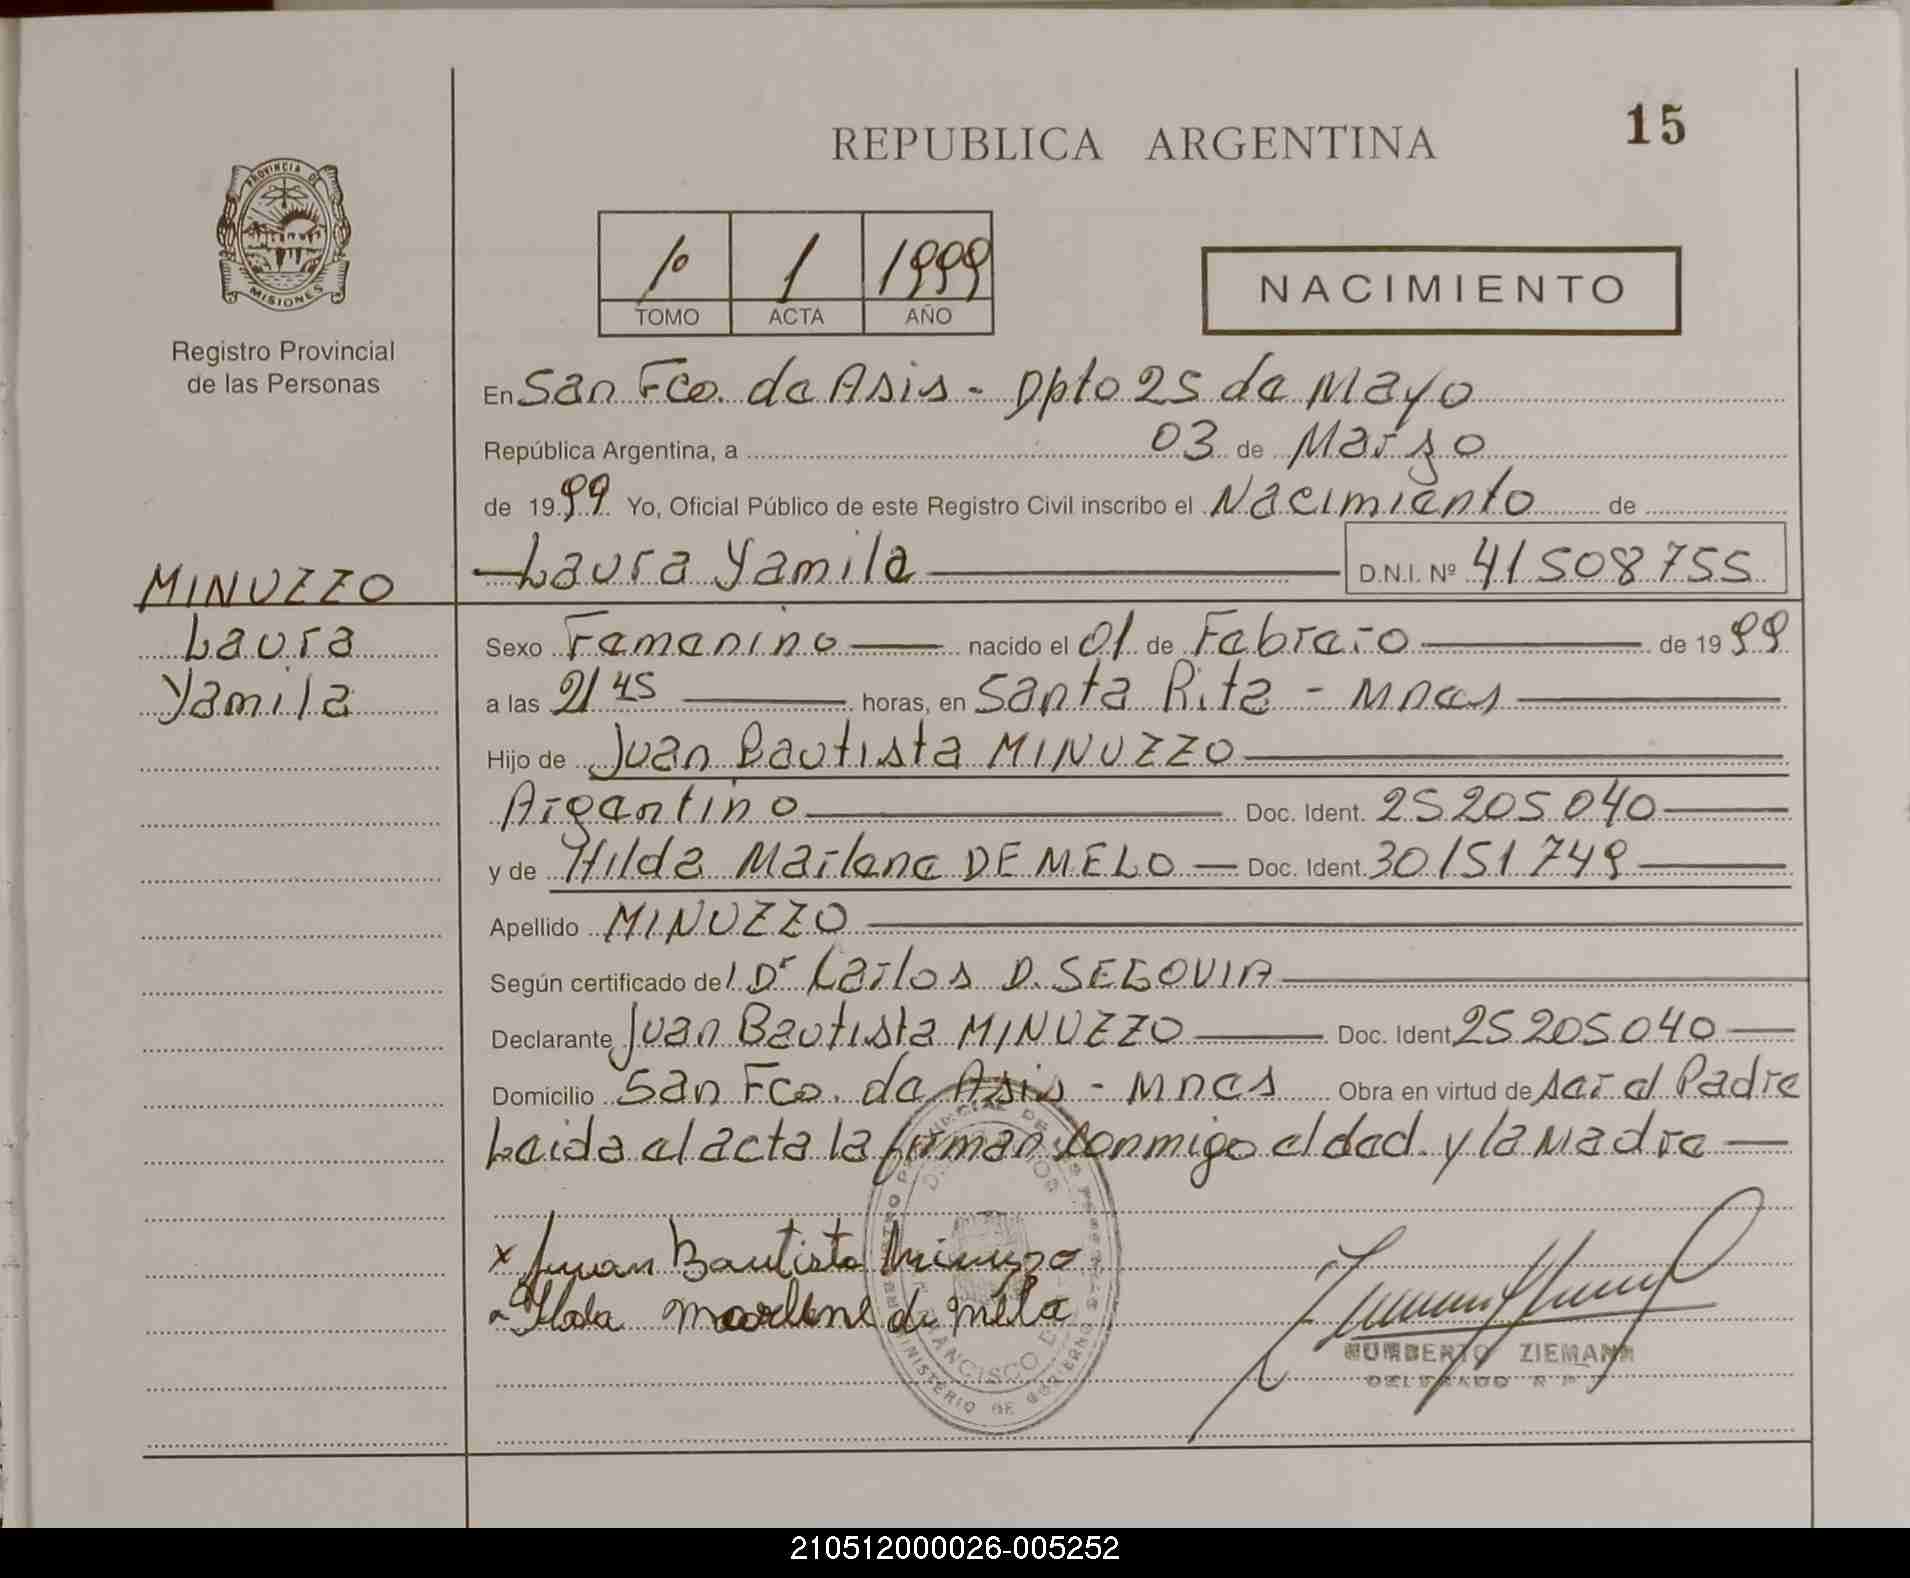 15
REPUBLICA ARGENTINA
PROVINCIA DE
MISIONES
Registro Provincial
de las Personas
1º 1 1999
TOMO ACTA AÑO
NACIMIENTO
En San Fco. de Asis - Dpto 25 de Mayo
República Argentina, a 03 de Marzo
de 1999 Yo, Oficial Público de este Registro Civil inscribo el Nacimiento de
Laura Yamila D.N.I. Nº 41508755
MINUZZO
Laura
Yamila
Sexo Femenino nacido el 01 de Febrero de 1999
a las 21 45 horas, en Santa Rita - Mnes
Hijo de Juan Bautista MINUZZO
Argentino Doc. Ident. 25205040
y de Hilda Marlene DE MELO Doc. Ident. 30151749
Apellido MINUZZO
Según certificado del Dr Carlos D. SEGOVIA
Declarante Juan Bautista MINUZZO Doc. Ident. 25205040
Domicilio San Fco. de Asis - Mnes Obra en virtud de ser el Padre
Leida el acta la firman conmigo el decl. y la Madre
x Juan Bautista Minuzzo
Marlene de Melo
HUMBERTO ZIEMANN
DELEGADO R P
MINISTERIO DE GOBIERNO
FRANCISCO DE
210512000026-005252